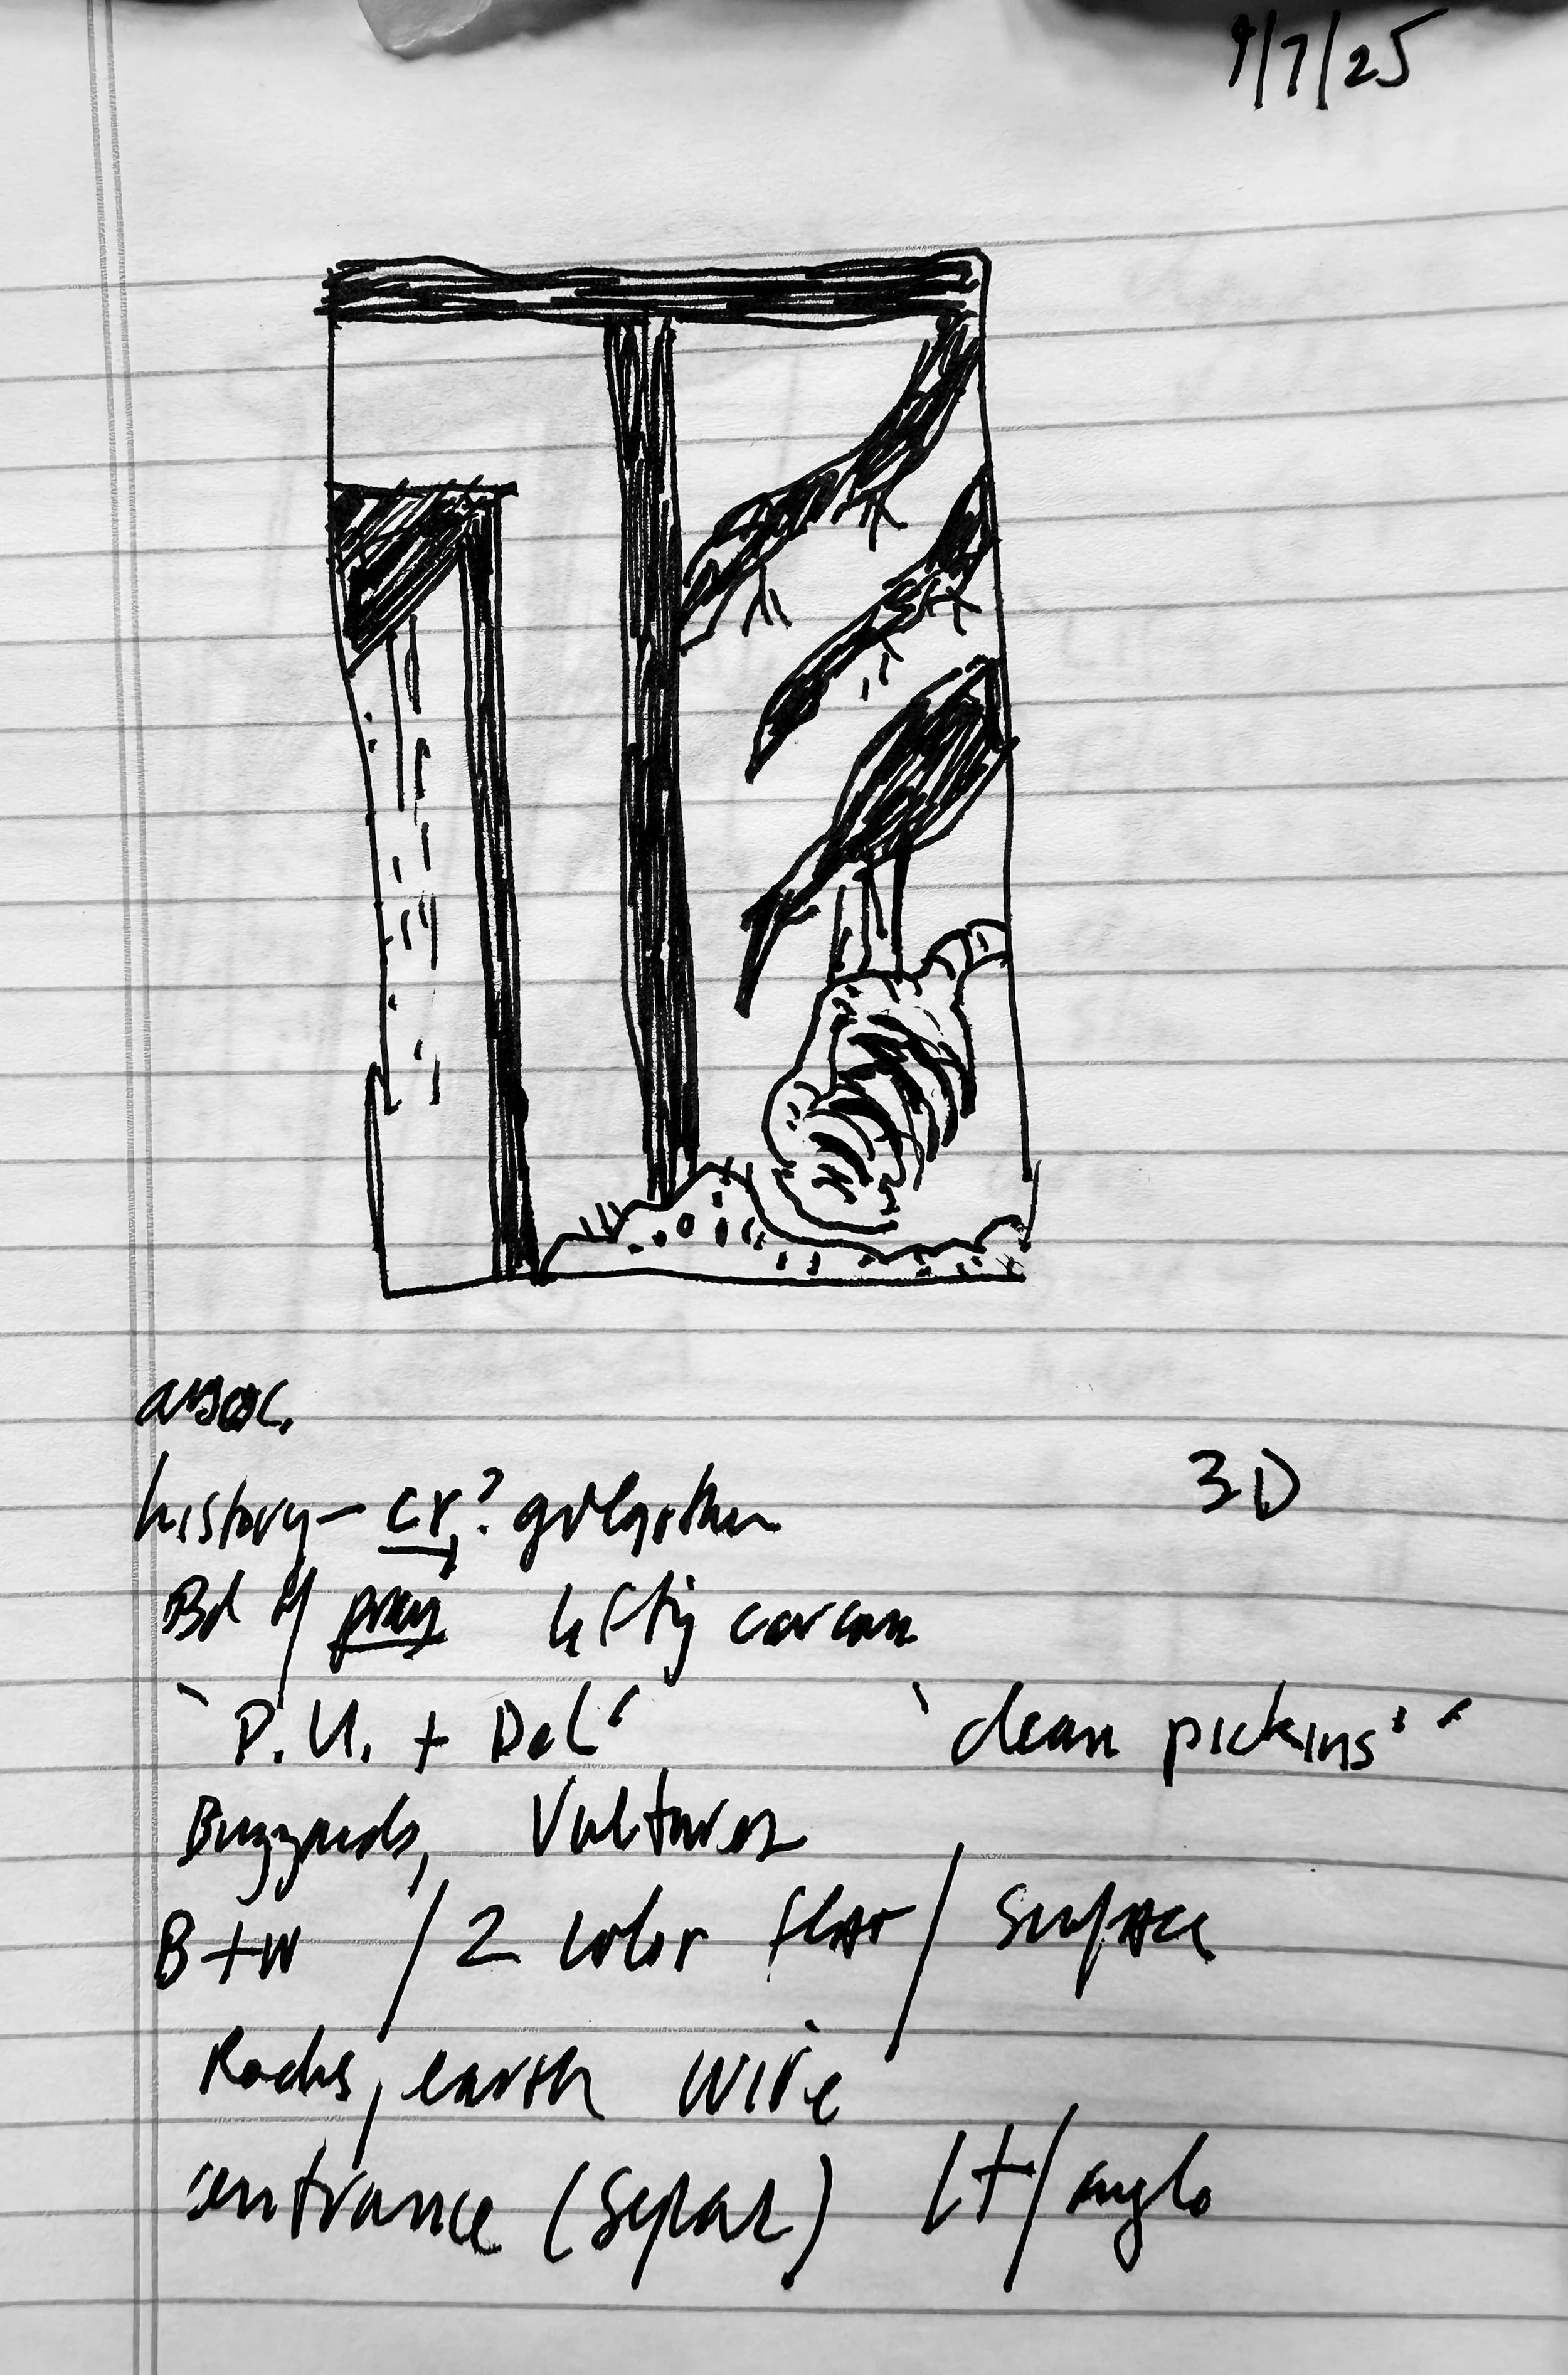 9/7/25
assoc.
history - cr.?
3D
Bd of prey lifting carcass
"P.U. + Del" "clean pickins'"
Buzzards, Vultures
B+W / 2 color / surface
Rocks, earth wire
entrance (separ) / angle